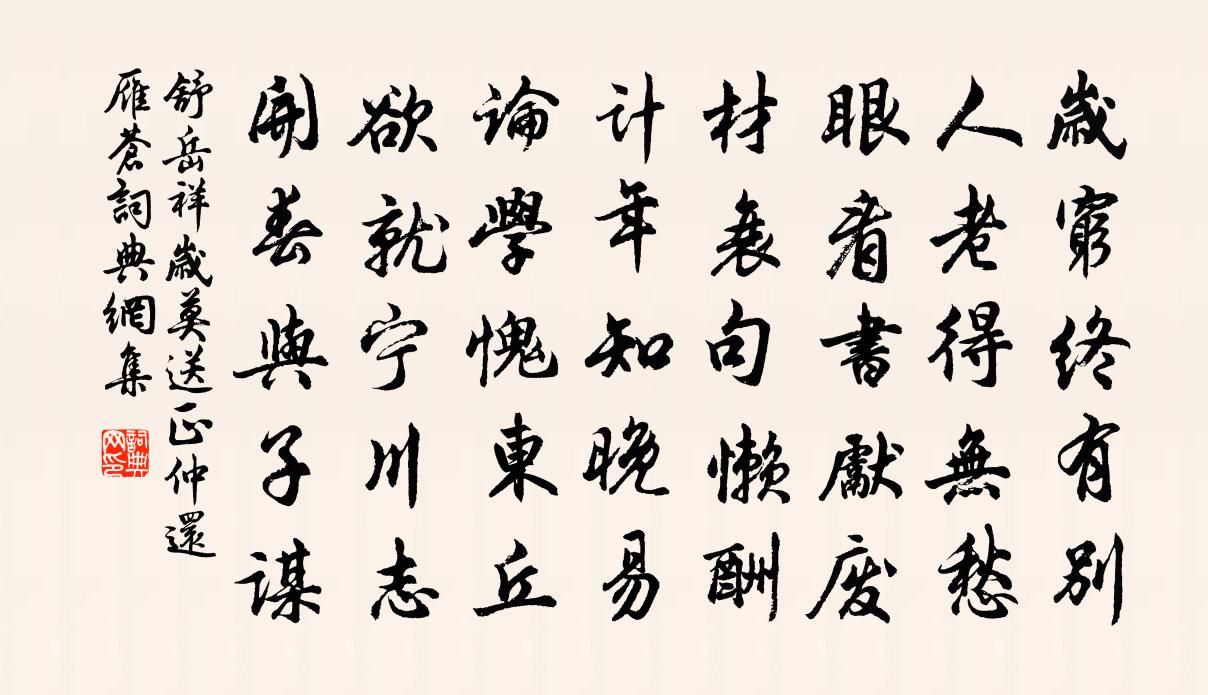 歲窮終有別
人老得無愁
眼看書獻废
材衰句懒酬
计年知晚易
论學愧東丘
欲就宁川志
開春與子谋
舒岳祥歲莫送正仲還
雁蒼詞典網集
詞典网印